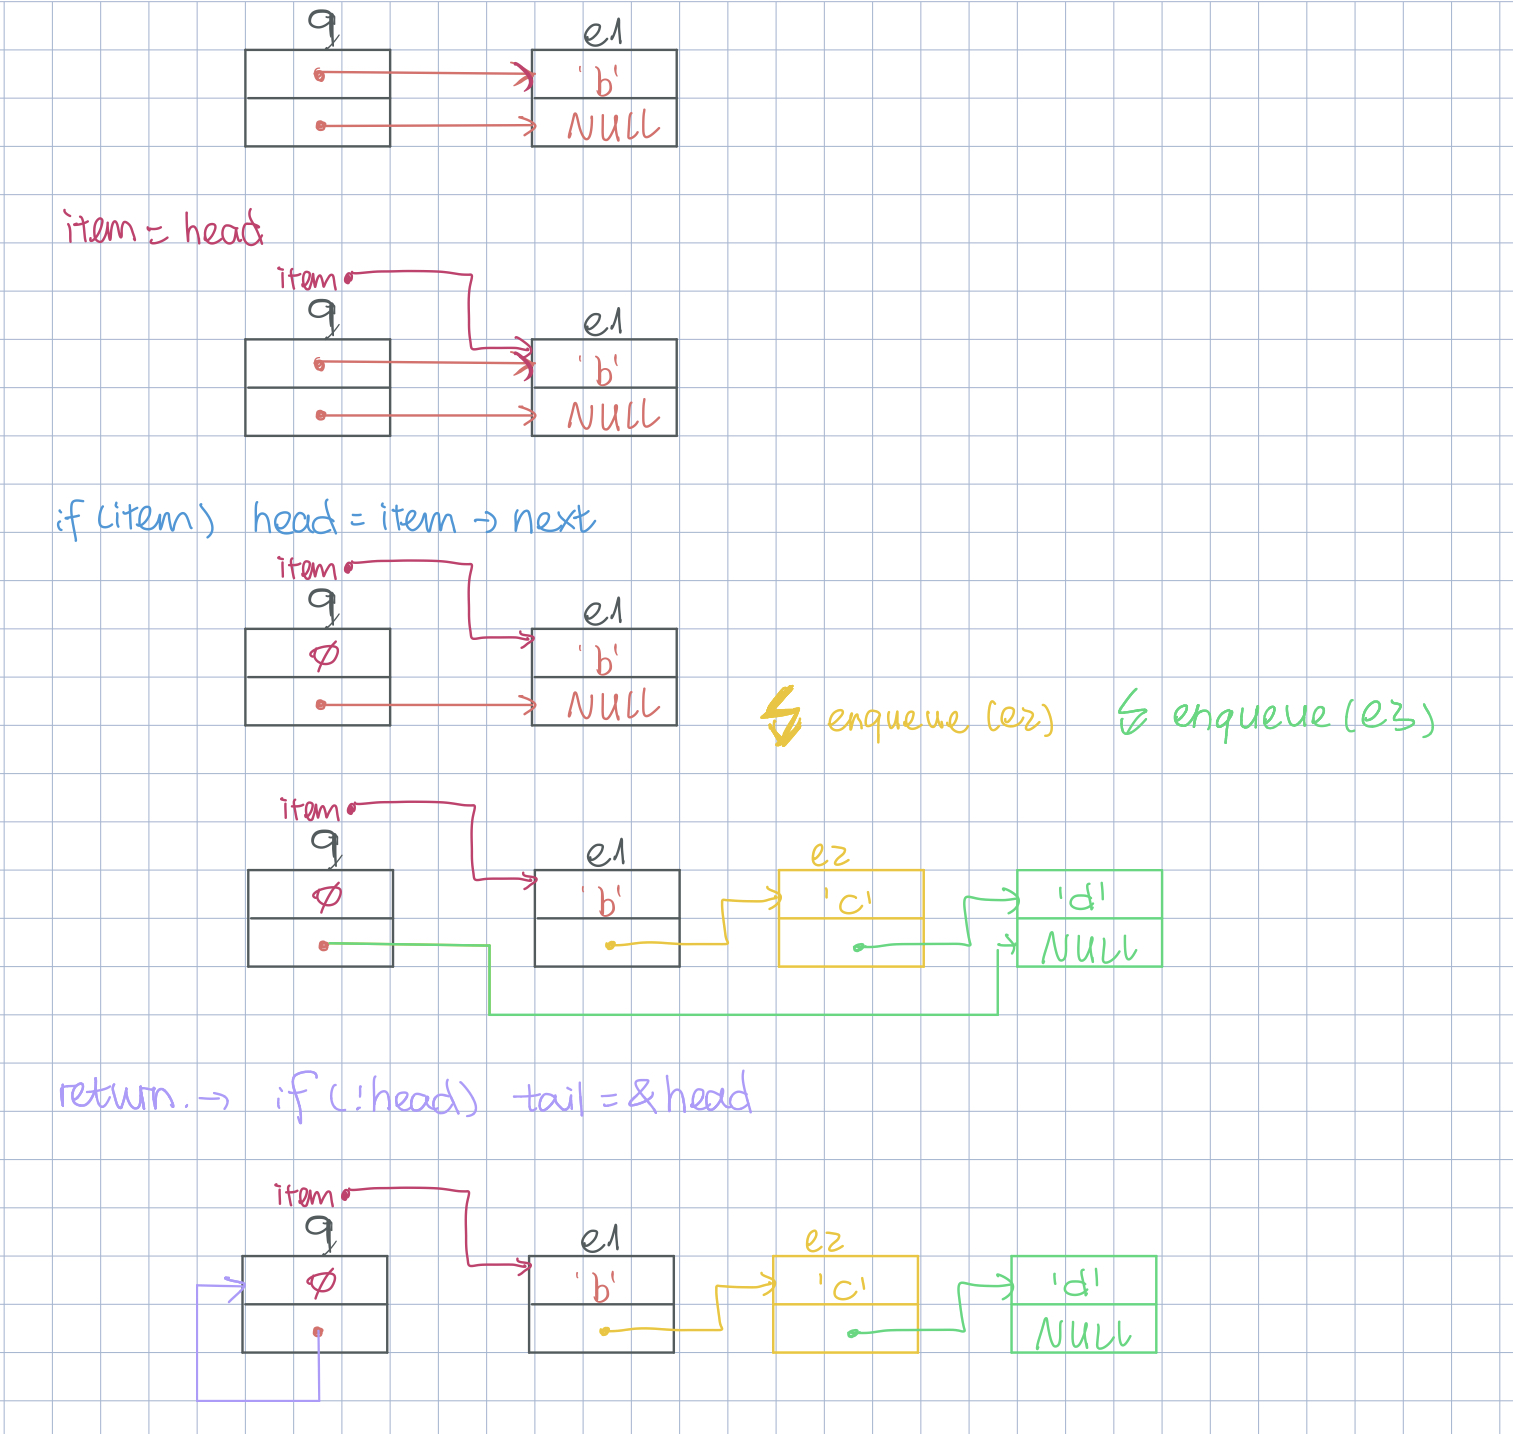 q e1
'b'
NULL
item = head
item
q e1
'b'
NULL
if (item) head = item → next
item
q e1
Ø 'b'
NULL
enqueue (e2) enqueue (e3)
item
q e1 e2
Ø 'b' 'c' 'd'
NULL
return. → if (!head) tail = &head
item
q e1 e2
Ø 'b' 'c' 'd'
NULL